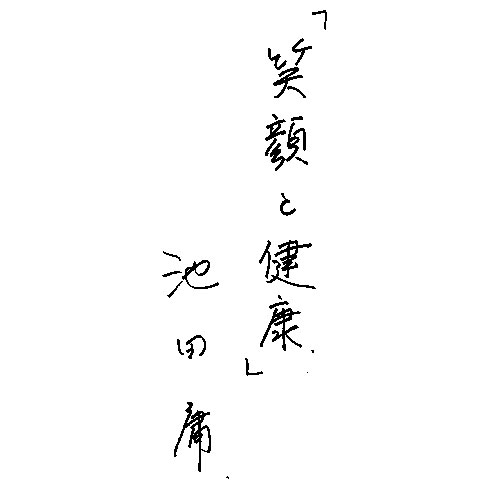 「笑顔と健康」
池田庸